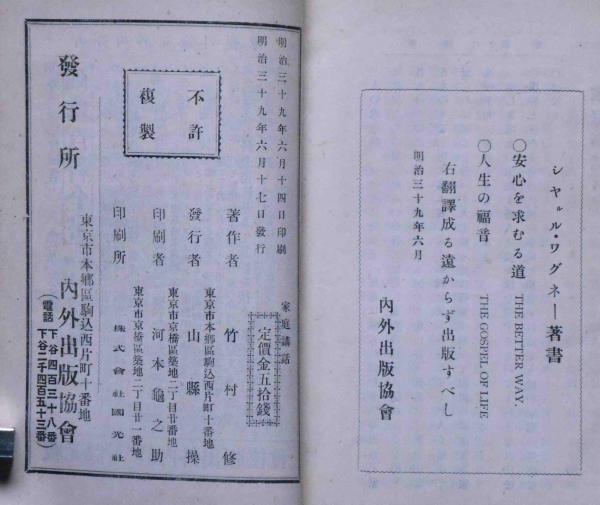 シヤㇽル・ワグネー著書
〇安心を求むる道 THE BETTER WAY.
〇人生の福音 THE GOSPEL OF LIFE
右翻譯成る遠からず出版すべし
明治三十九年六月
內外出版協會
明治三十九年六月十四日印刷
明治三十九年六月十七日發行
家庭講話
定價金五拾錢
不許
複製
著作者 竹村修
東京市本鄕區駒込西片町十番地
發行者 山縣操
東京市京橋區築地二丁目廿一番地
印刷者 河本龜之助
東京市京橋區築地二丁目廿一番地
印刷所 株式會社國光社
發行所
東京市本鄕區駒込西片町十番地
內外出版協會
(電話 下谷四百三十八番
下谷二千四百五十三番)